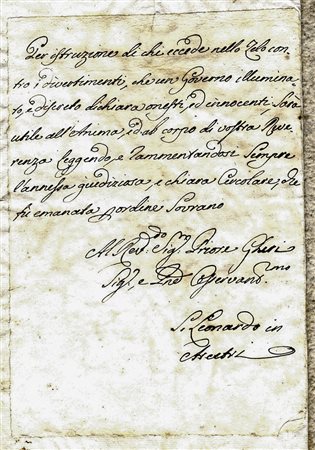 Per istruzione di chi eccede nello Zelo con
tro i divertimenti, che un Governo illumina
to, e discreto dichiara onesti, ed innocenti, Sarà
utile all'Anima, ed al corpo di vostra Reve
renza leggendo, e rammentandosi Sempre
l'annessa giudiziosa, e chiara Circolare, che
fù emanata p ordine Sovrano
Al Rev.do Sig.re Priore
Sig.e, e Pnd Osservand.mo
S. Leonardo in
Arcetri